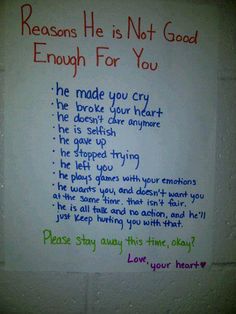 Reasons He is Not Good
Enough For You
• he made you cry
• he broke your heart
• he doesn't care anymore
• he is selfish
• he gave up
• he stopped trying
• he left you
• he plays games with your emotions
• he wants you, and doesn't want you
at the same time. that isn't fair.
• he is all talk and no action, and he'll
just keep hurting you with that.
Please stay away this time, okay?
Love, your heart♥